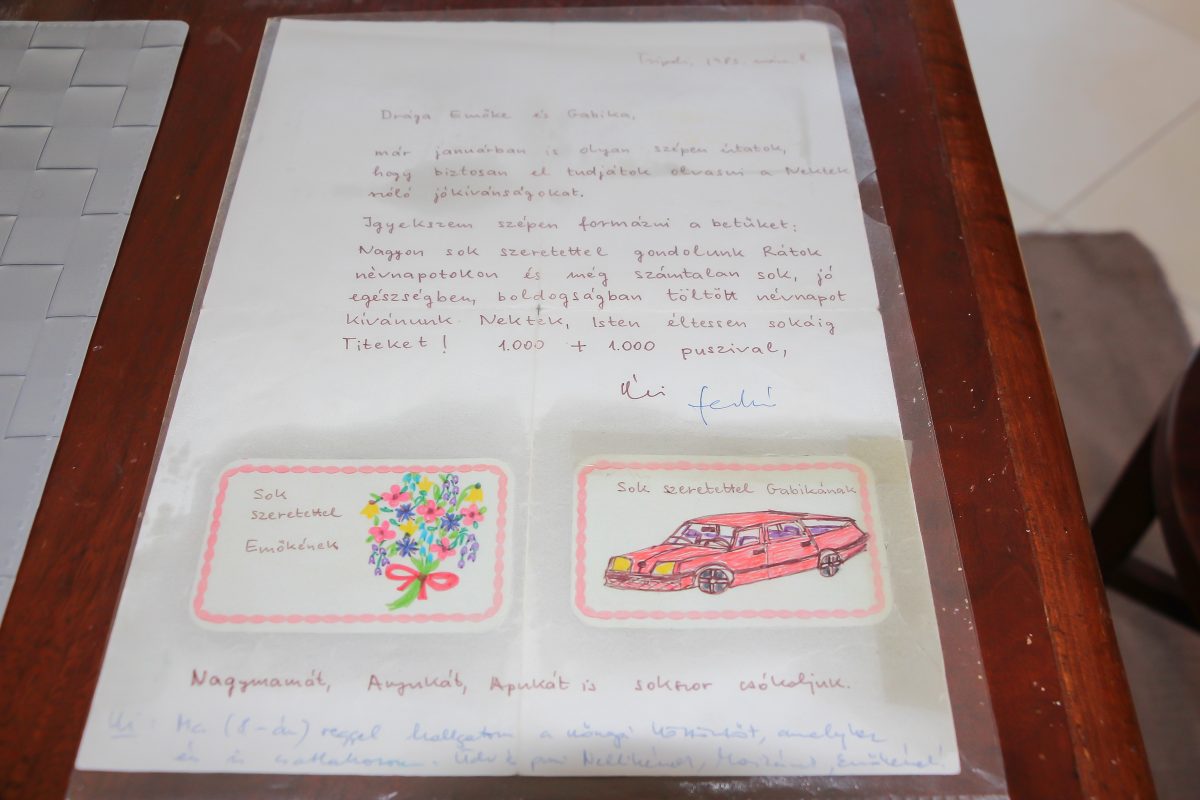 Tripoli, 1983. márc. 8.
Drága Emőke és Gabika,
már januárban is olyan szépen írtatok,
hogy biztosan el tudjátok olvasni a Nektek
szóló jókívánságokat.
Igyekszem szépen formázni a betűket:
Nagyon sok szeretettel gondolunk Rátok
névnapotokon és még számtalan sok, jó
egészségben, boldogságban töltött névnapot
kívánunk Nektek, Isten éltessen sokáig
Titeket! 1.000 + 1.000 puszival,
Sok
szeretettel
Emőkének
Sok szeretettel Gabikának
Nagymamát, Anyukát, Apukát is sokszor csókoljuk.
Ma (8-án) reggel hallgatom a köszöntőt, amelyhez
én is csatlakozom.